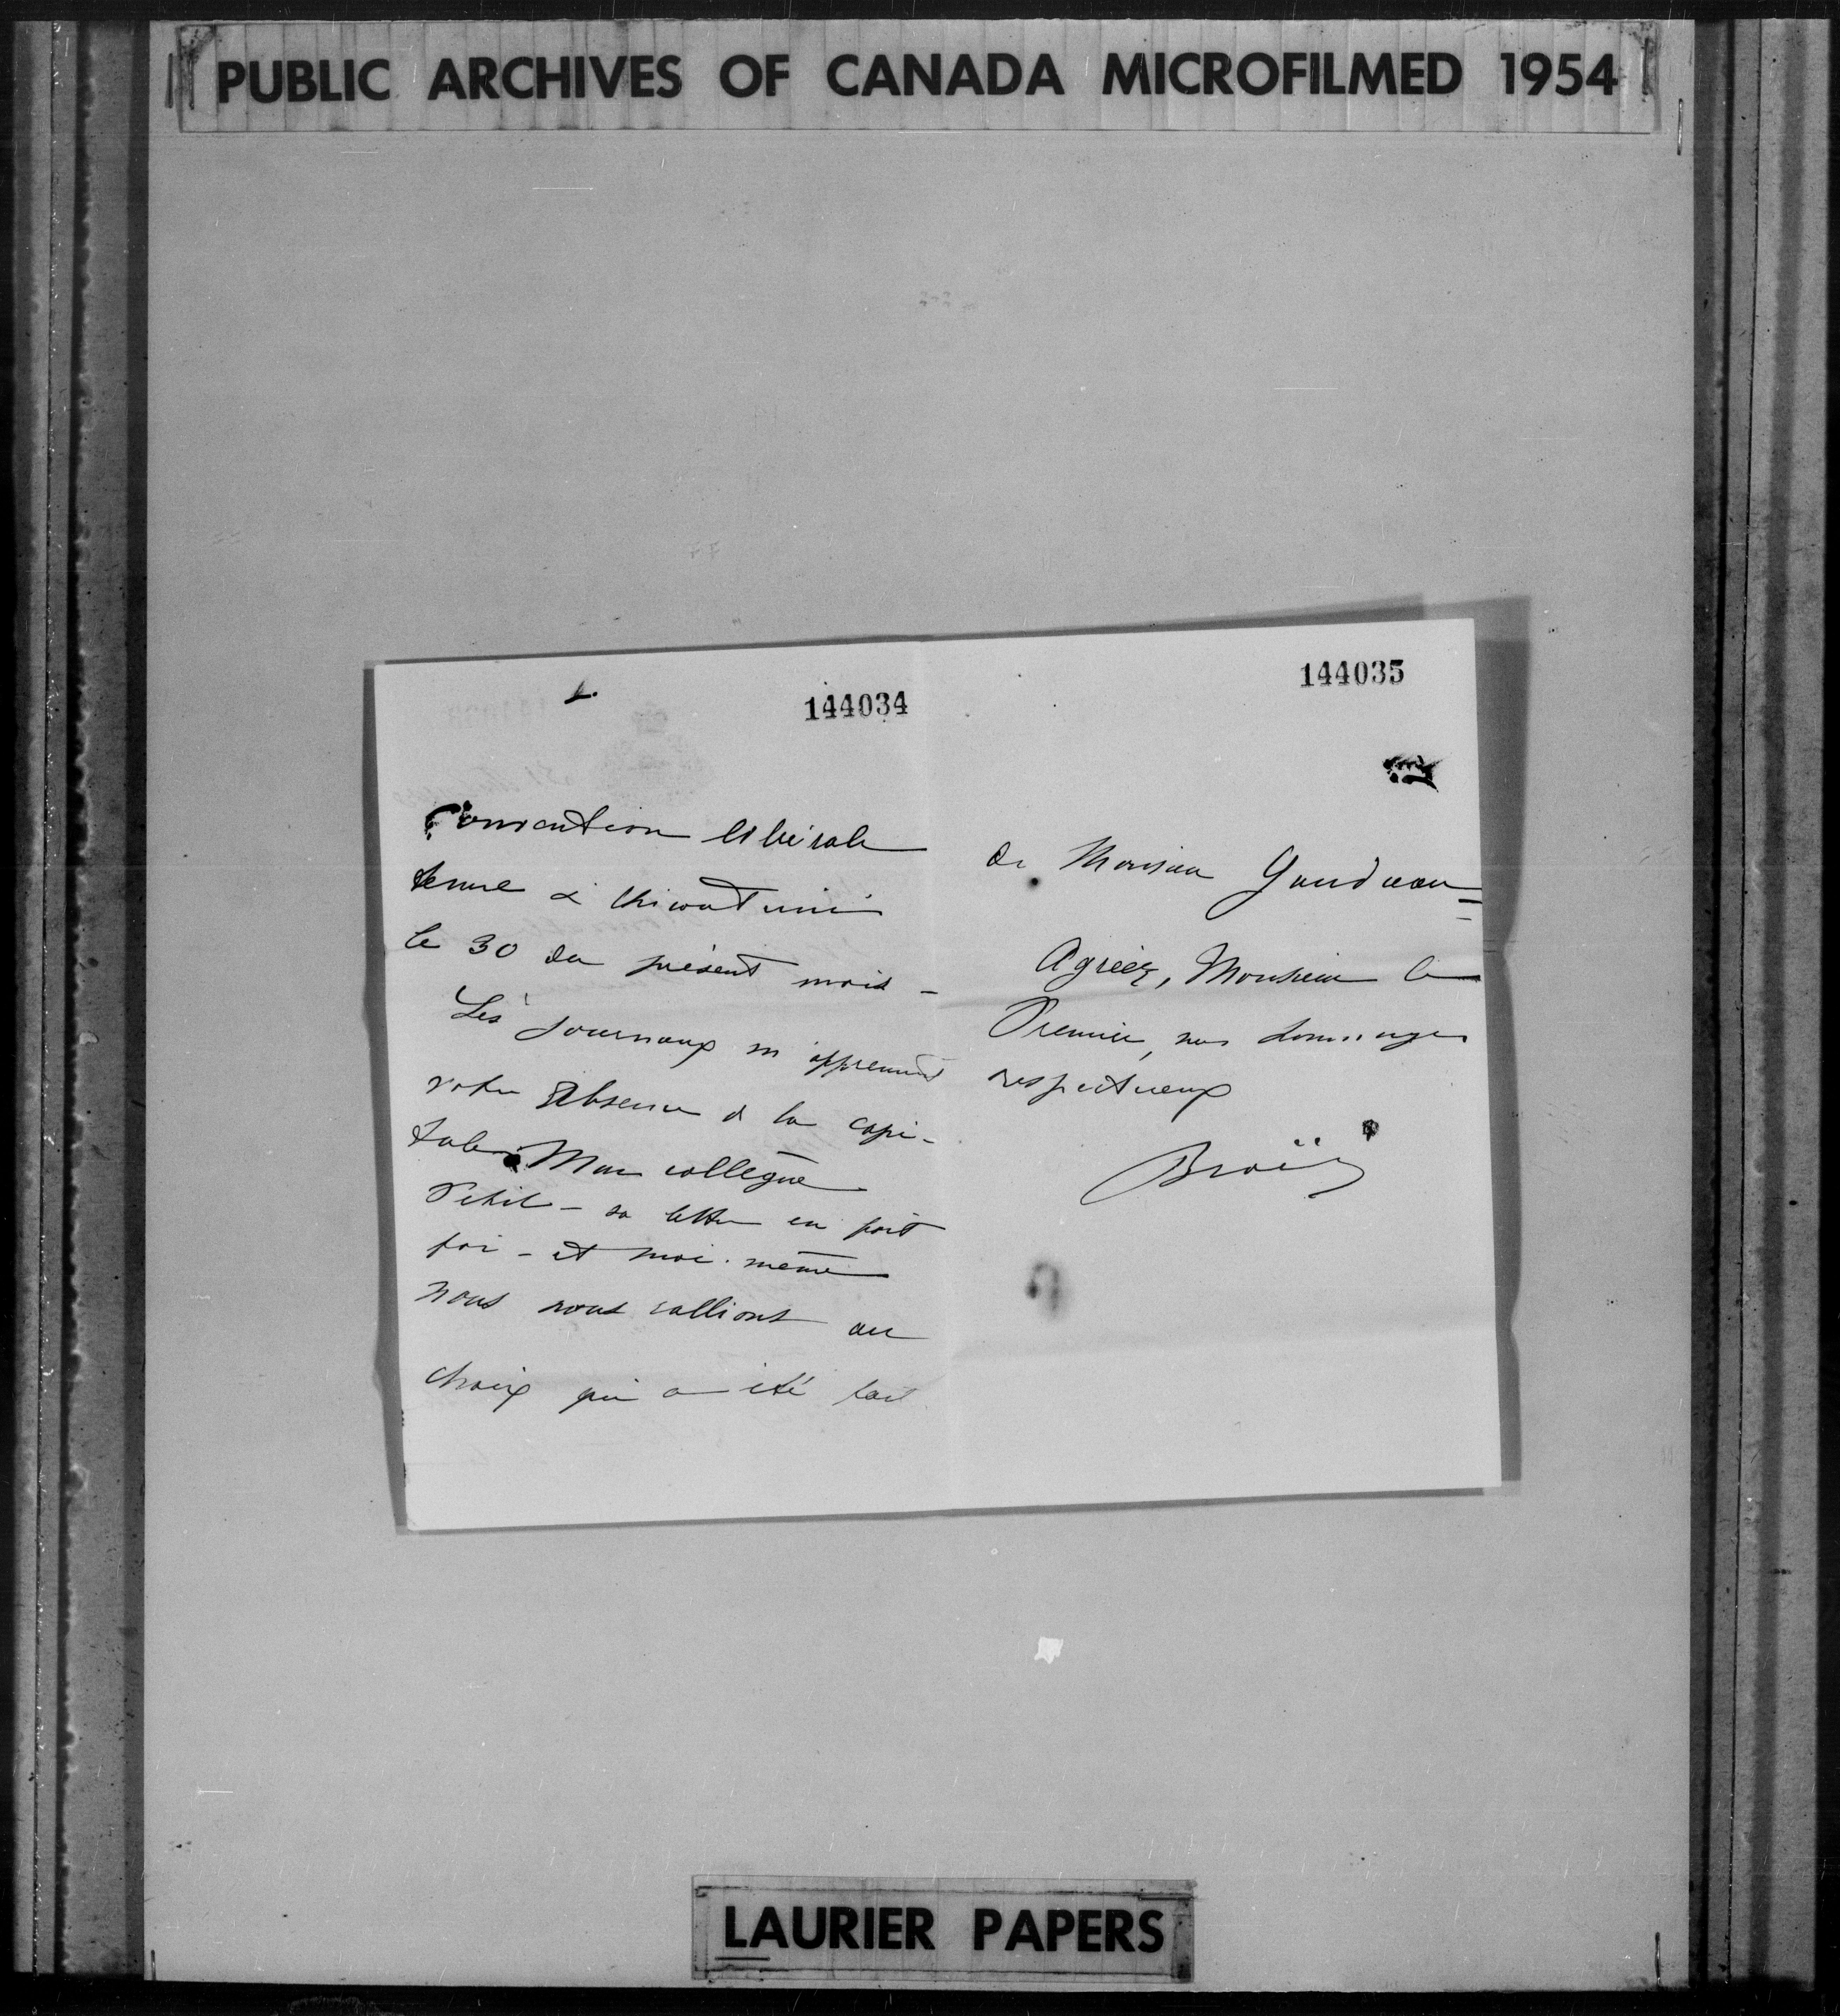 PUBLIC ARCHIVES OF CANADA MICROFILMED 1954
144034
Convention libérale
tenue à Chicoutimi
le 30 du présent mois -
Les journaux m'apprennent
votre absence de la capi-
tale. Mon collègue
Petit - sa lettre en fait
foi - et moi-même
nous nous rallions au
choix qui a été fait
144035
de Monsieur Gaudreau
Agréez, Monsieur le
Premier, nos hommages
respectueux
LAURIER PAPERS